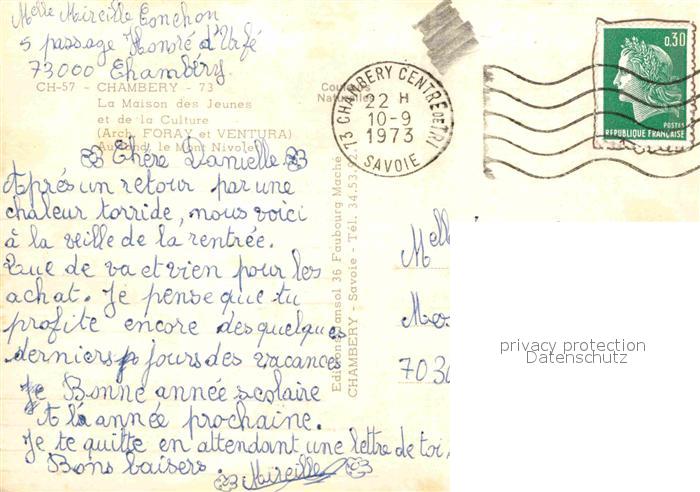 Melle Mireille Conchon
5 passage Honoré d'Urfé
73000 Chambéry
CH-57 - CHAMBERY - 73
Couleurs
Naturelles
La Maison des Jeunes
et de la Culture
(Arch. FORAY et VENTURA)
Au fond, le Mont Nivolet
Chère Danielle
Après un retour par une
chaleur torride, nous voici
à la veille de la rentrée.
Que de va et vien pour les
achat. Je pense que tu
profite encore des quelques
derniers jours des vacances
Je Bonne année scolaire
A la année prochaine.
Je te quitte en attendant une lettre de toi,
Bons baisers.
Mireille
36 Faubourg Maché
CHAMBERY - Savoie - Tél. 34.53.
73 CHAMBERY CENTRE DE TRI
22 H
10-9
1973
SAVOIE
0,30
POSTES
REPUBLIQUE FRANÇAISE
Melle
703
privacy protection
Datenschutz